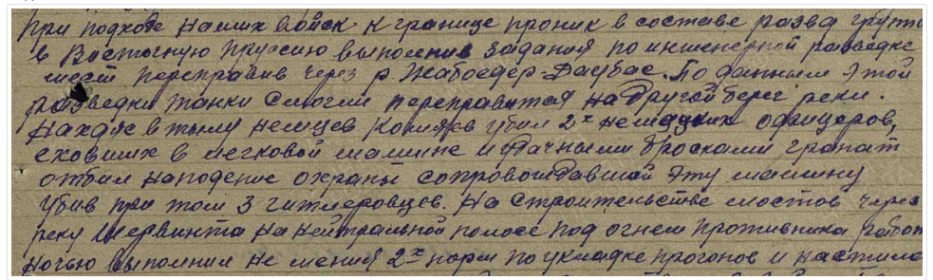 При подходе наших войск к границе проник в составе развед группы
в Восточную Прусию выполнив задания по инженерной разведке
мест переправ через р. Жабоедер-Даубас. По данным этой
разведки танки смогли переправится на другой берег реки.
Находяс в тылу немцев Коняев убил 2х немецких офицеров,
еховших в легковой машине и удачными бросками гранат
отбил нападение охраны сопровождавшей эту машину
убив при том 3 гитлеровцов. На строительстве мостов через
реку Шервинта на нейтральной полосе под огнем противника
ночью выполнил не мения 2х норм по укладке прогонов и настила